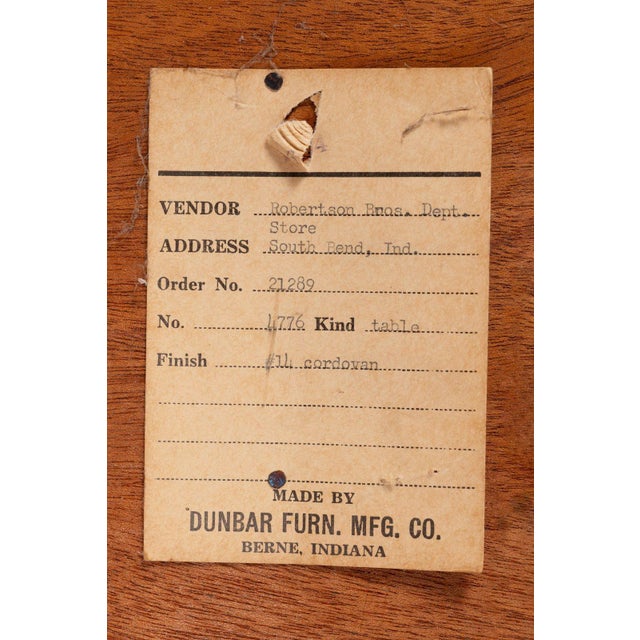 VENDOR Robertson Bros. Dept.
Store
ADDRESS South Bend, Ind.
Order No. 21289
No. 4776 Kind table
Finish #14 cordovan
MADE BY
DUNBAR FURN. MFG. CO.
BERNE, INDIANA